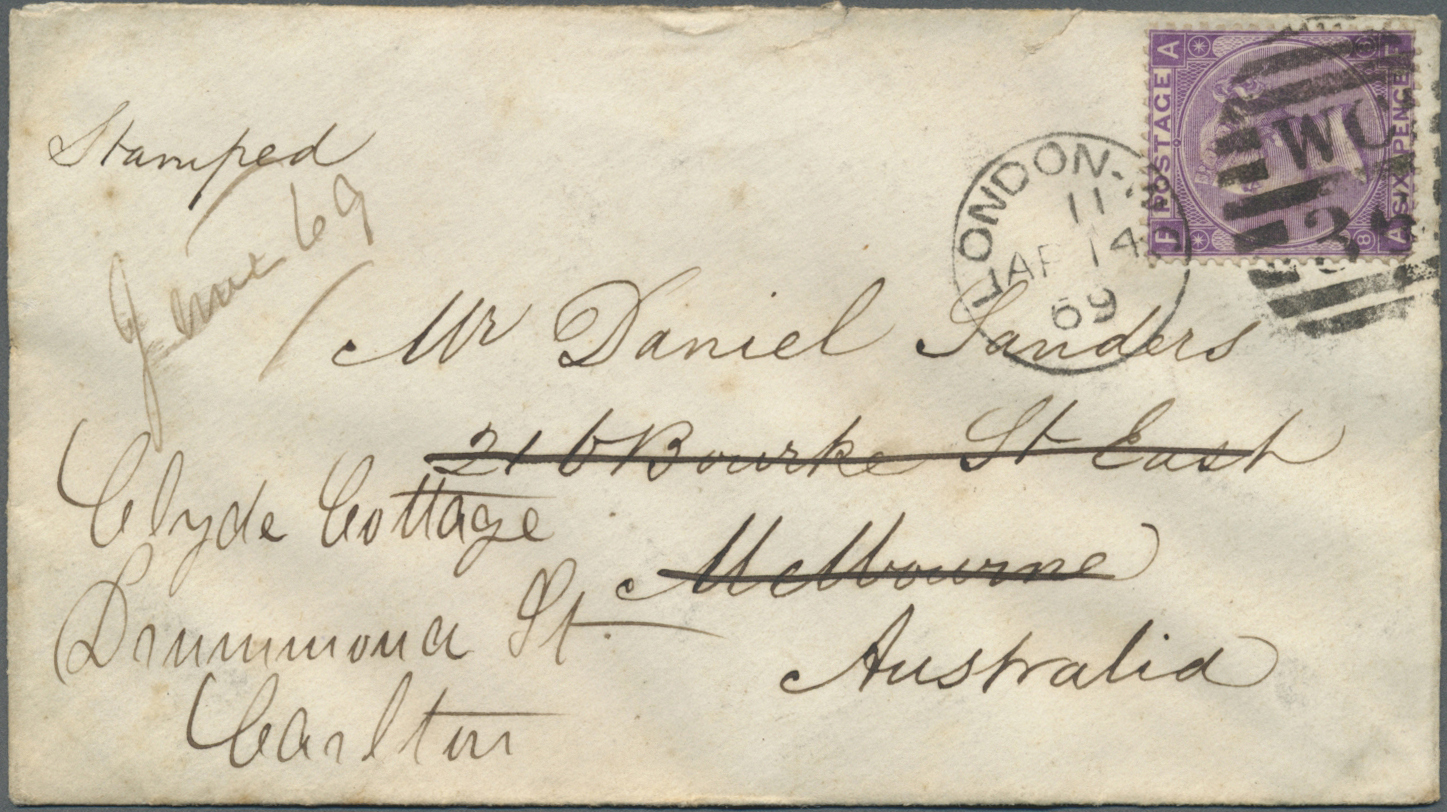 Stamped
June 69
LONDON
11
AP 14
69
A POSTAGE F
SIX PENCE
A
8
WC
3
Mr Daniel Sanders
216 Bourke St East
Melbourne
Australia
Clyde Cottage
Drummond St
Carlton